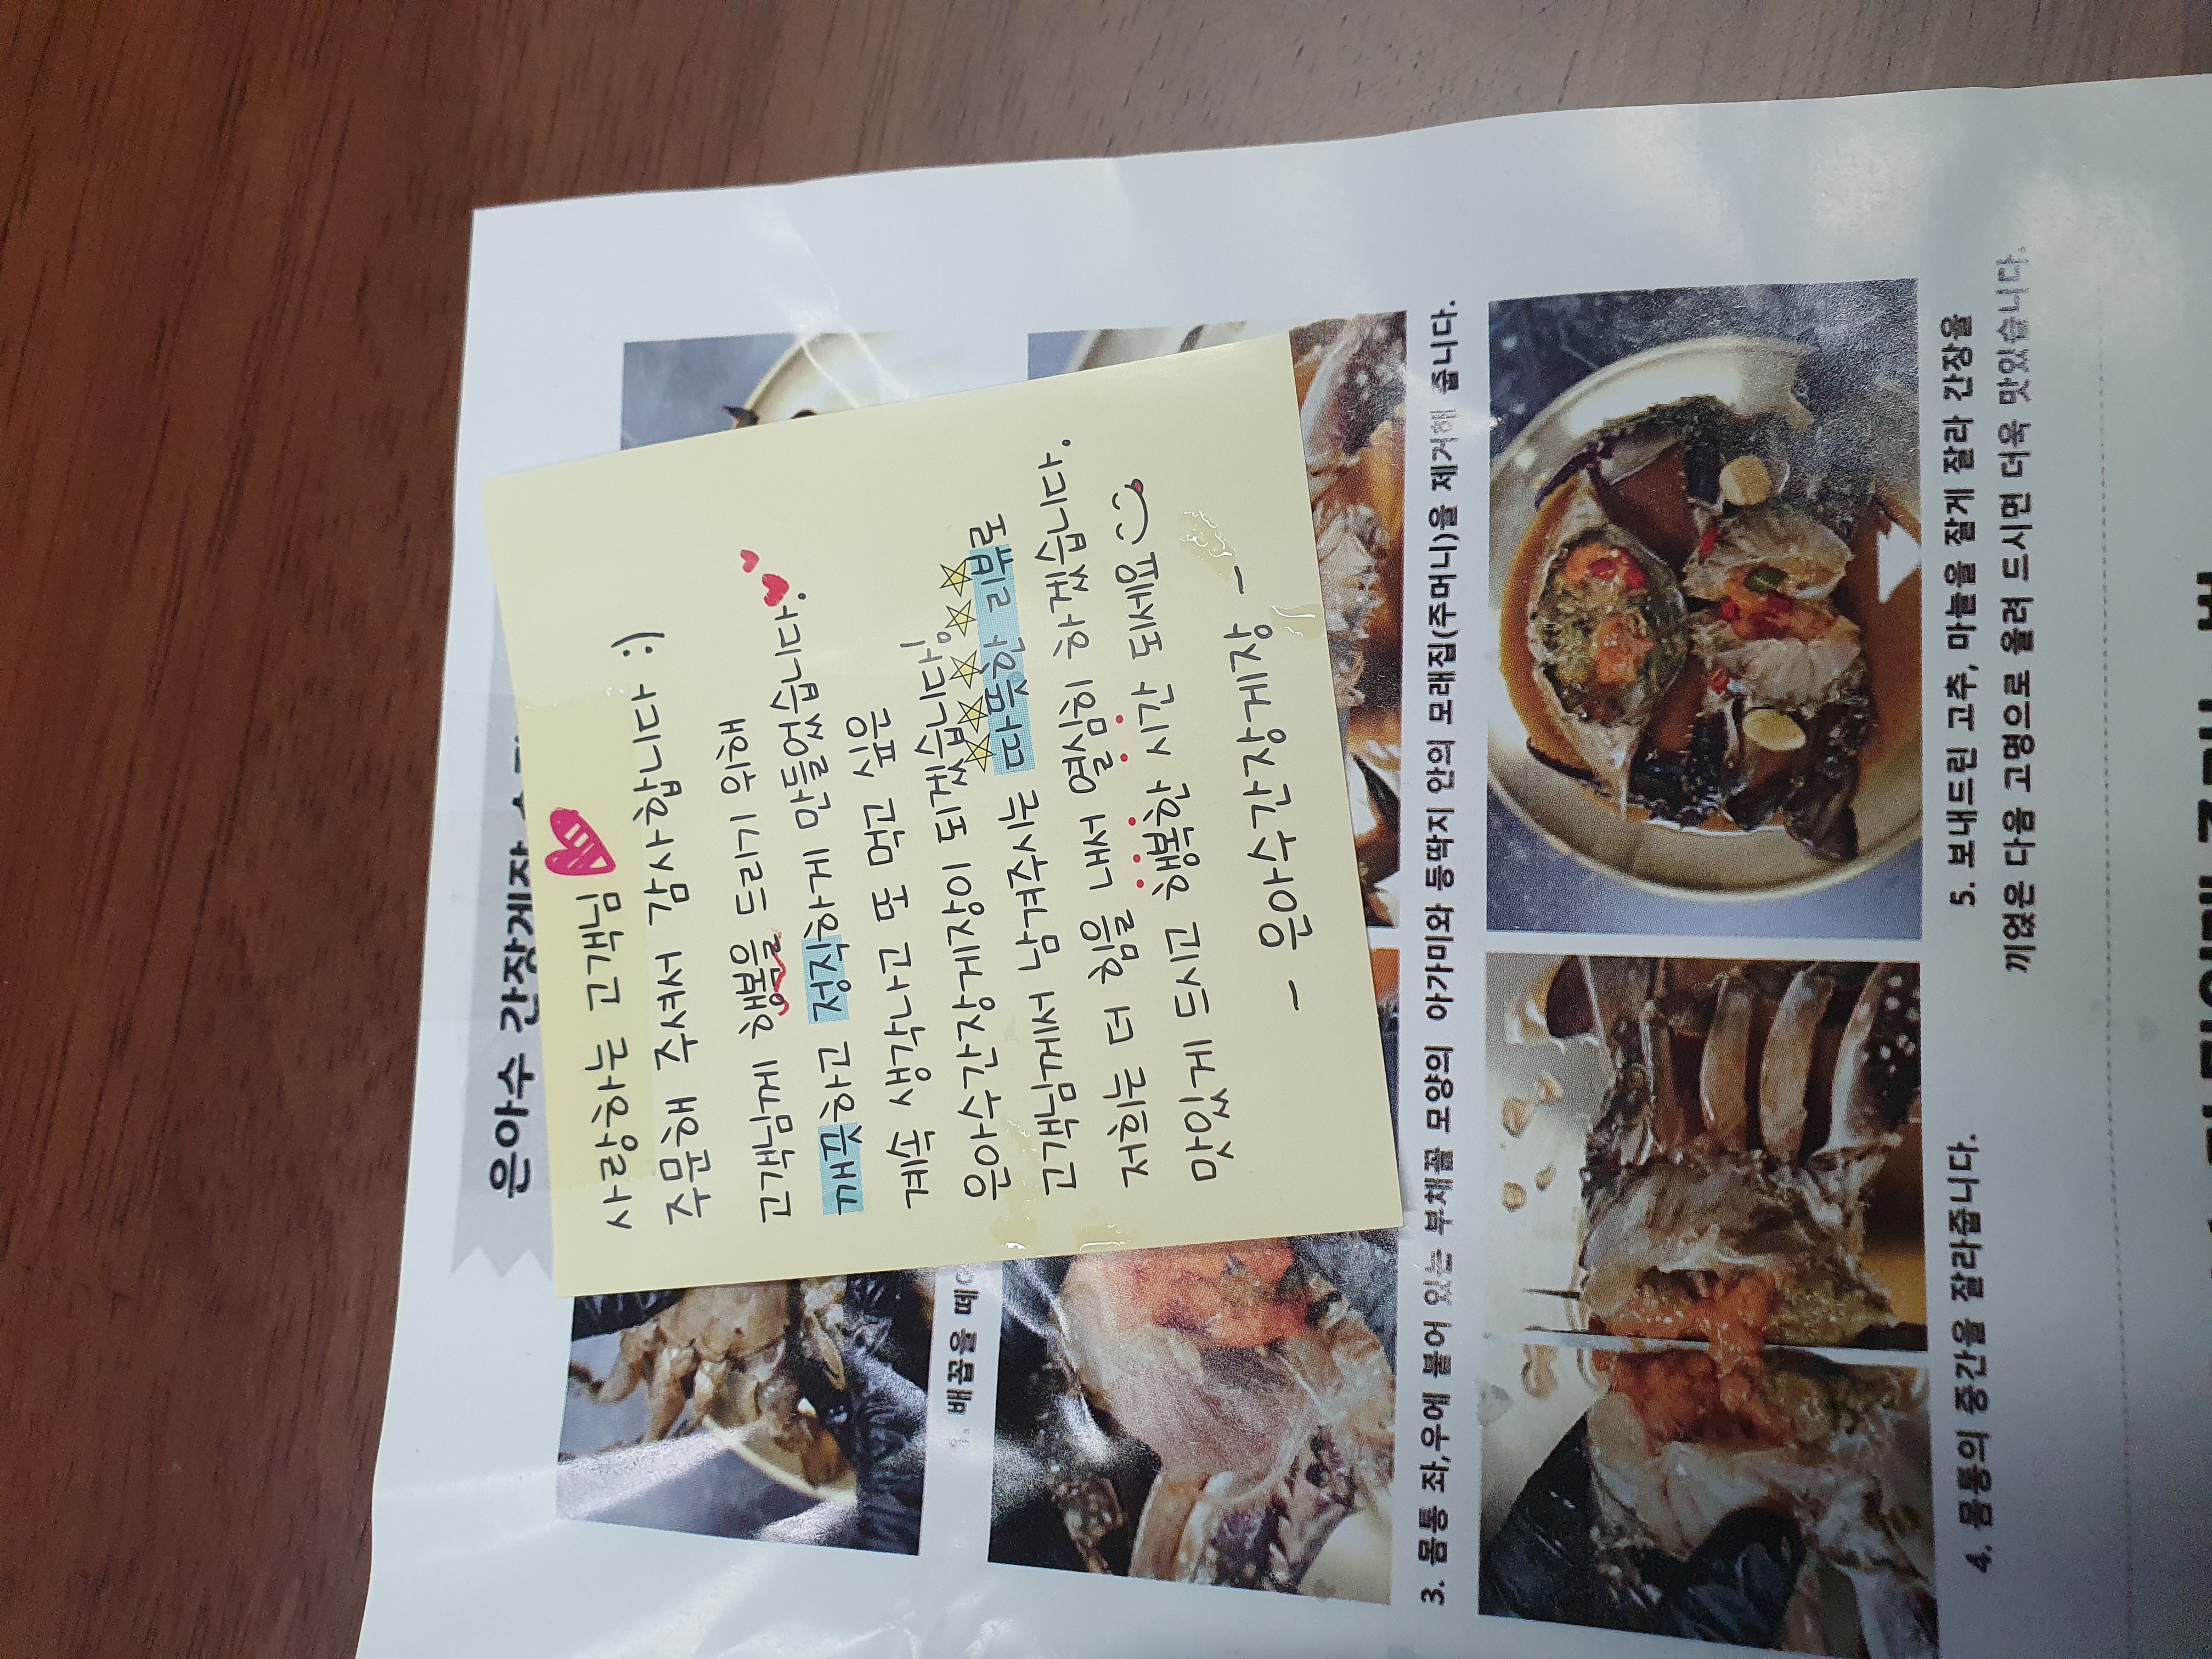 은아수 간장게장
사랑하는 고객님
주문해 주셔서 감사합니다 :)
고객님께 행복을 드리기 위해
깨끗하고 정직하게 만들었습니다.
계속 생각나고 또 먹고 싶은
은아수간장게장이 되겠습니다!
고객님께서 남겨주시는 따뜻한 리뷰로
저희는 더 힘을 내서 열심히 하겠습니다.
맛있게 드시고 행복한 시간 되세요
- 은아수간장게장 -
배꼽을
3. 몸통 좌,우에 붙어 있는 부채꼴 모양의 아가미와 등딱지 안의 모래집(주머니)을 제거해 줍니다.
4. 몸통의 중간을 잘라줍니다.
5. 보내드린 고추, 마늘을 잘게 잘라 간장을
끼얹은 다음 고명으로 올려 드시면 더욱 맛있습니다.